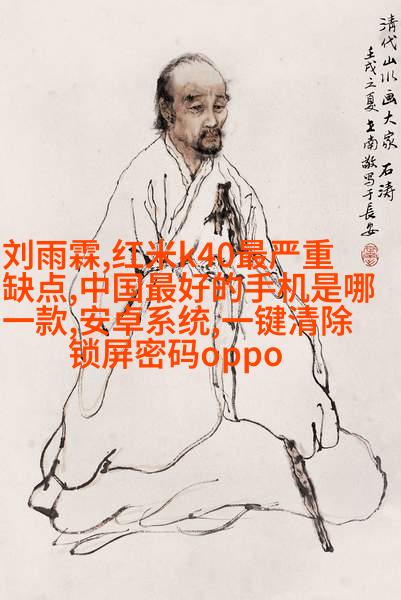 清代山水画大家 石涛
壬戌之夏 王南敬写于长安
刘雨霖,红米K40最严重
缺点,中国最好的手机是哪
一款,安卓系统,一键清除
锁屏密码oppo